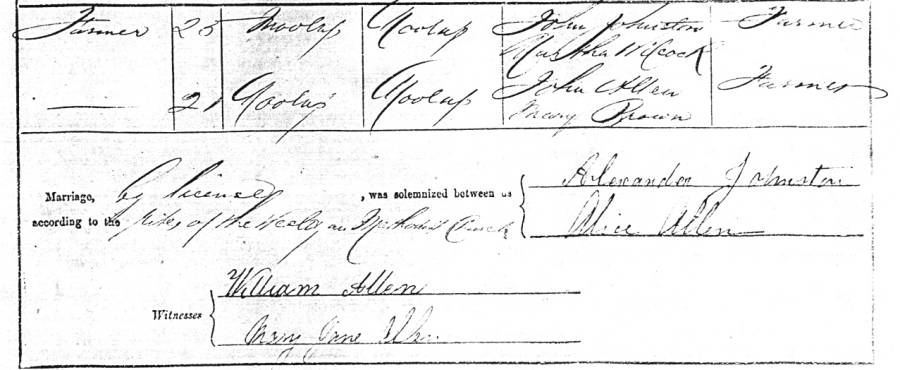 Farmer 25 Moolap Moolap John Johnston Farmer
Martha Wilcock
21 Moolap Moolap John Allen Farmer
Mary Brown
Marriage, by license, was solemnized between us { Alexander Johnston
according to the Rites of the Wesleyan Methodist Church Alice Allen
Witnesses { William Allen
Mary Jane